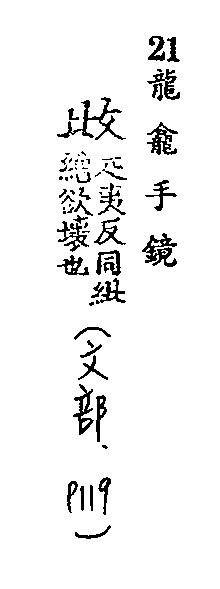 21龍龕手鏡
疋夷反同紕
繒欲壞也
(文部、P119)